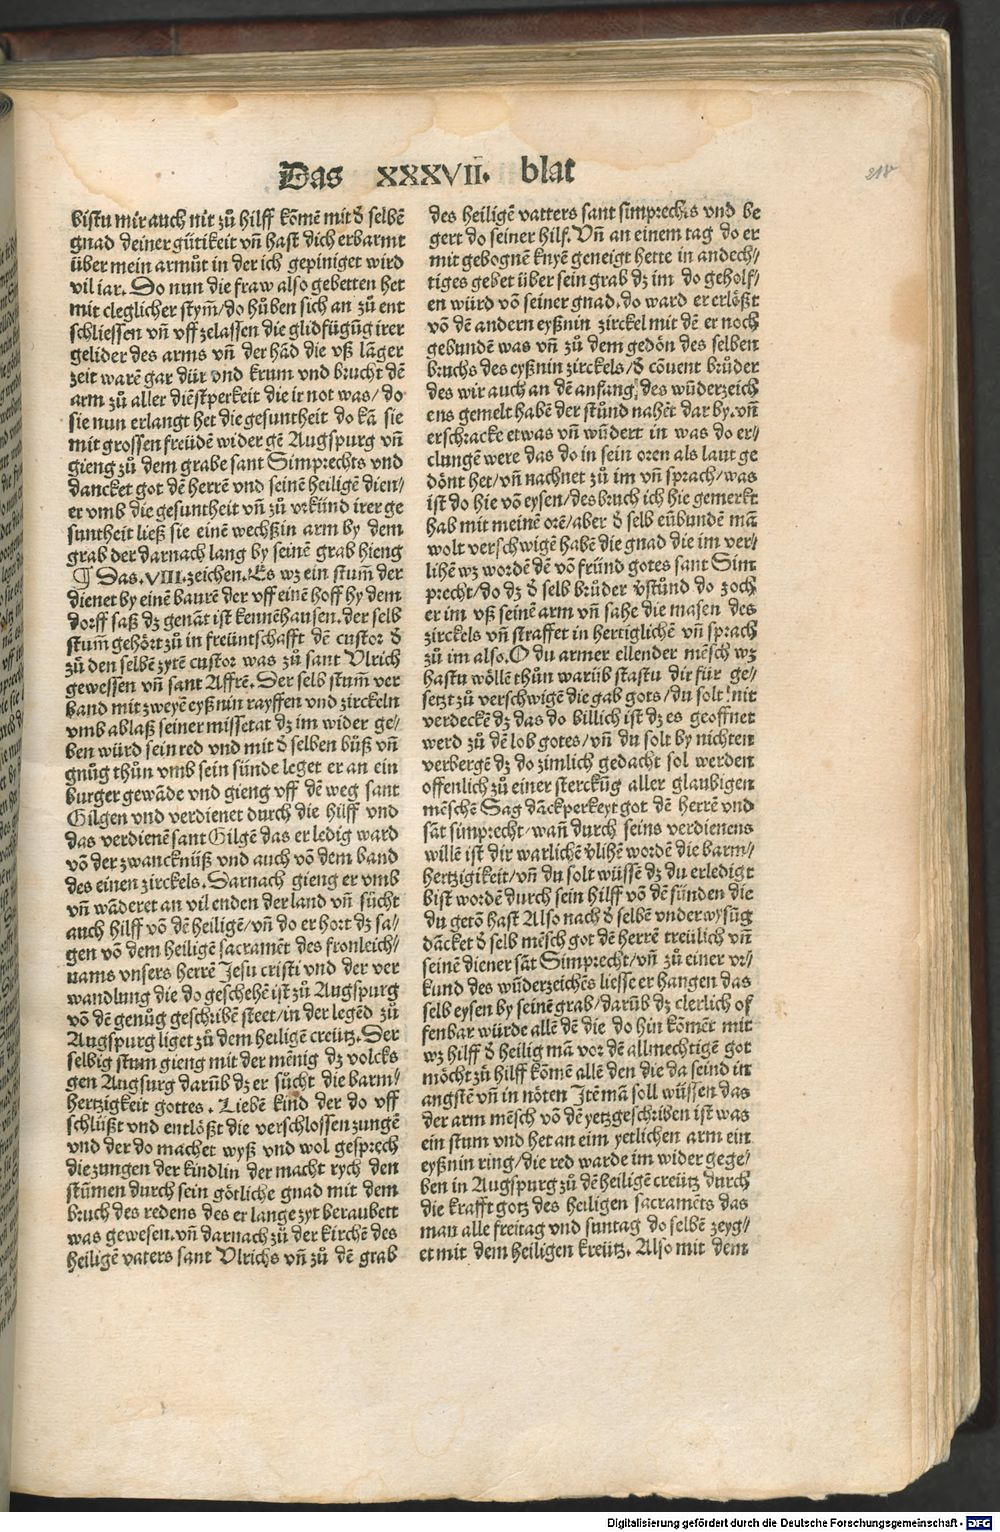 Das XXXVII. blat
bistu mir auch nit zů hilff kōmē mit d̄ selbē
gnad deiner gütikeit vn̄ hast dich erbarmt
über mein armůt in der ich gepiniget wird
vil iar. So nun die fraw also gebetten het
mit cleglicher stym̄/do hůben sich an zů ent
schliessen vn̄ vff zelassen die glidfügūg irer
gelider des arms vn̄ der hād die vß lāger
zeit warē gar dür vnd krum vnd brucht dē
arm zů aller diēstperkeit die ir not was/do
sie nun erlangt het die gesuntheit do kā sie
mit grossen freüdē wider gē Augspurg vn̄
gieng zů dem grabe sant Simprechts vnd
dancket got dē herrē vnd seinē heiligē dien/
er vmb die gesuntheit vn̄ zů vrkünd irer ge
suntheit ließ sie einē wechßin arm by dem
grab der darnach lang by seinē grab hieng
¶ Das .VIII. zeichen. Es wz ein stum̄ der
dienet by einē baurē der vff einē hoff by dem
dorff saß dz genāt ist kennēhausen. der selb
stum̄ gehört zů in freüntschafft dē custor d̄
zů den selbē zytē custor was zů sant Vlrich
gewessen vn̄ sant Affrē. Der selb stum̄ ver
band mit zweyē eyßnin rayffen vnd zirckeln
vmb ablaß seiner missetat dz im wider ge/
ben würd sein red vnd mit d̄ selben bůß vn̄
gnůg thůn vmb sein sünde leget er an ein
burger gewāde vnd gieng vff dē weg sant
Gilgen vnd verdienet durch die hilff vnd
das verdienē sant Gilgē das er ledig ward
vō der zwancknüß vnd auch vō dem band
des einen zirckels. Darnach gieng er vmb
vn̄ wāderet an vil enden der land vn̄ sücht
auch hilff vō dē heiligē/vn̄ do er hort dz sa/
gen vō dem heiligē sacramēt des fronleich/
nams vnsers herrē Jesu cristi vnd der ver
wandlung die do geschehē ist zů Augspurg
vō dē genůg geschribē steet/in der legēd zů
Augspurg liget zů dem heiligē creütz. Der
selbig stum gieng mit der mēnig dz volcks
gen Augsurg darūb dz er sücht die barm/
hertzigkeit gottes. Liebē kind der do vff
schlüßt vnd entlößt die verschlossen zungē
vnd der do machet wyß vnd wol gesprech
die zungen der kindlin der macht rych den
stūmen durch sein götliche gnad mit dem
bruch des redens des er lange zyt beraubett
was gewesen. vn̄ darnach zů der kirchē des
heiligē vaters sant Vlrichs vn̄ zů dē grab
des heiligē vatters sant simprechts vnd be
gert do seiner hilf. Vn̄ an einem tag do er
mit gebognē knyē geneigt hette in andech/
tiges gebet über sein grab dz im do geholf/
en würd vō seiner gnad. do ward er erlößt
vō dē andern eyßnin zirckel mit dē er noch
gebundē was vn̄ zů dem gedön des selben
bruchs des eyßnin zirckels/d̄ cōuent brůder
des wir auch an dē anfang des wūderzeich
ens gemelt habē der stůnd nahēt dar by. vn̄
erschracke etwas vn̄ wūdert in was do er/
clungē were das do in sein oren als laut ge
dönt het/vn̄ nachnet zů im vn̄ sprach/was
ist do hie vō eysen/des bruch ich hie gemerkt
hab mit meinē orē/aber d̄ selb eūbundē mā
wolt verschwigē habē die gnad die im ver/
lihē wz wordē dē vō fründ gotes sant Sim
precht/do dz d̄ selb brůder v̄stůnd do zoch
er im vß seinē arm vn̄ sahe die masen des
zirckels vn̄ straffet in hertiglichē vn̄ sprach
zů im also. O du armer ellender mēsch wz
hastu wöllē thůn warūb stastu dir für ge/
setzt zů verschwigē die gab gots/du solt nit
verdeckē dz das do billich ist dz es geoffnet
werd zů dē lob gotes/vn̄ du solt by nichten
verbergē dz do zimlich gedacht sol werden
offenlich zů einer sterckūg aller glaubigen
mēschē Sag dāckperkeyt got dē herrē vnd
sāt simprecht/wan̄ durch seins verdienens
willē ist dir warlichē v̄lihē wordē die barm/
hertzigikeit/vn̄ du solt wüssē dz du erledigt
bist wordē durch sein hilff vō dē sünden die
du getō hast Also nach d̄ selbē vnderwysūg
dācket d̄ selb mēsch got dē herrē treülich vn̄
seinē diener sāt Simprecht/vn̄ zů einer vr/
kund des wūderzeichēs liesse er hangen das
selb eysen by seinē grab/darūb dz clerlich of
fenbar würde allē dē die do hin kōmēt mit
wz hilff d̄ heilig mā vor dē allmechtigē got
möcht zů hilff kōmē allē den die da seind in
angstē vn̄ in nöten Itē mā soll wüssen das
der arm mēsch vō dē yetzgeschriben ist was
ein stum vnd het an eim yetlichen arm ein
eyßnin ring/die red warde im wider gege/
ben in Augspurg zů dē heiligē creütz durch
die krafft gotz des heiligen sacramēts das
man alle freitag vnd suntag do selbē zeyg/
et mit dem heiligen kreütz. Also mit dem
Digitalisierung gefördert durch die Deutsche Forschungsgemeinschaft - DFG